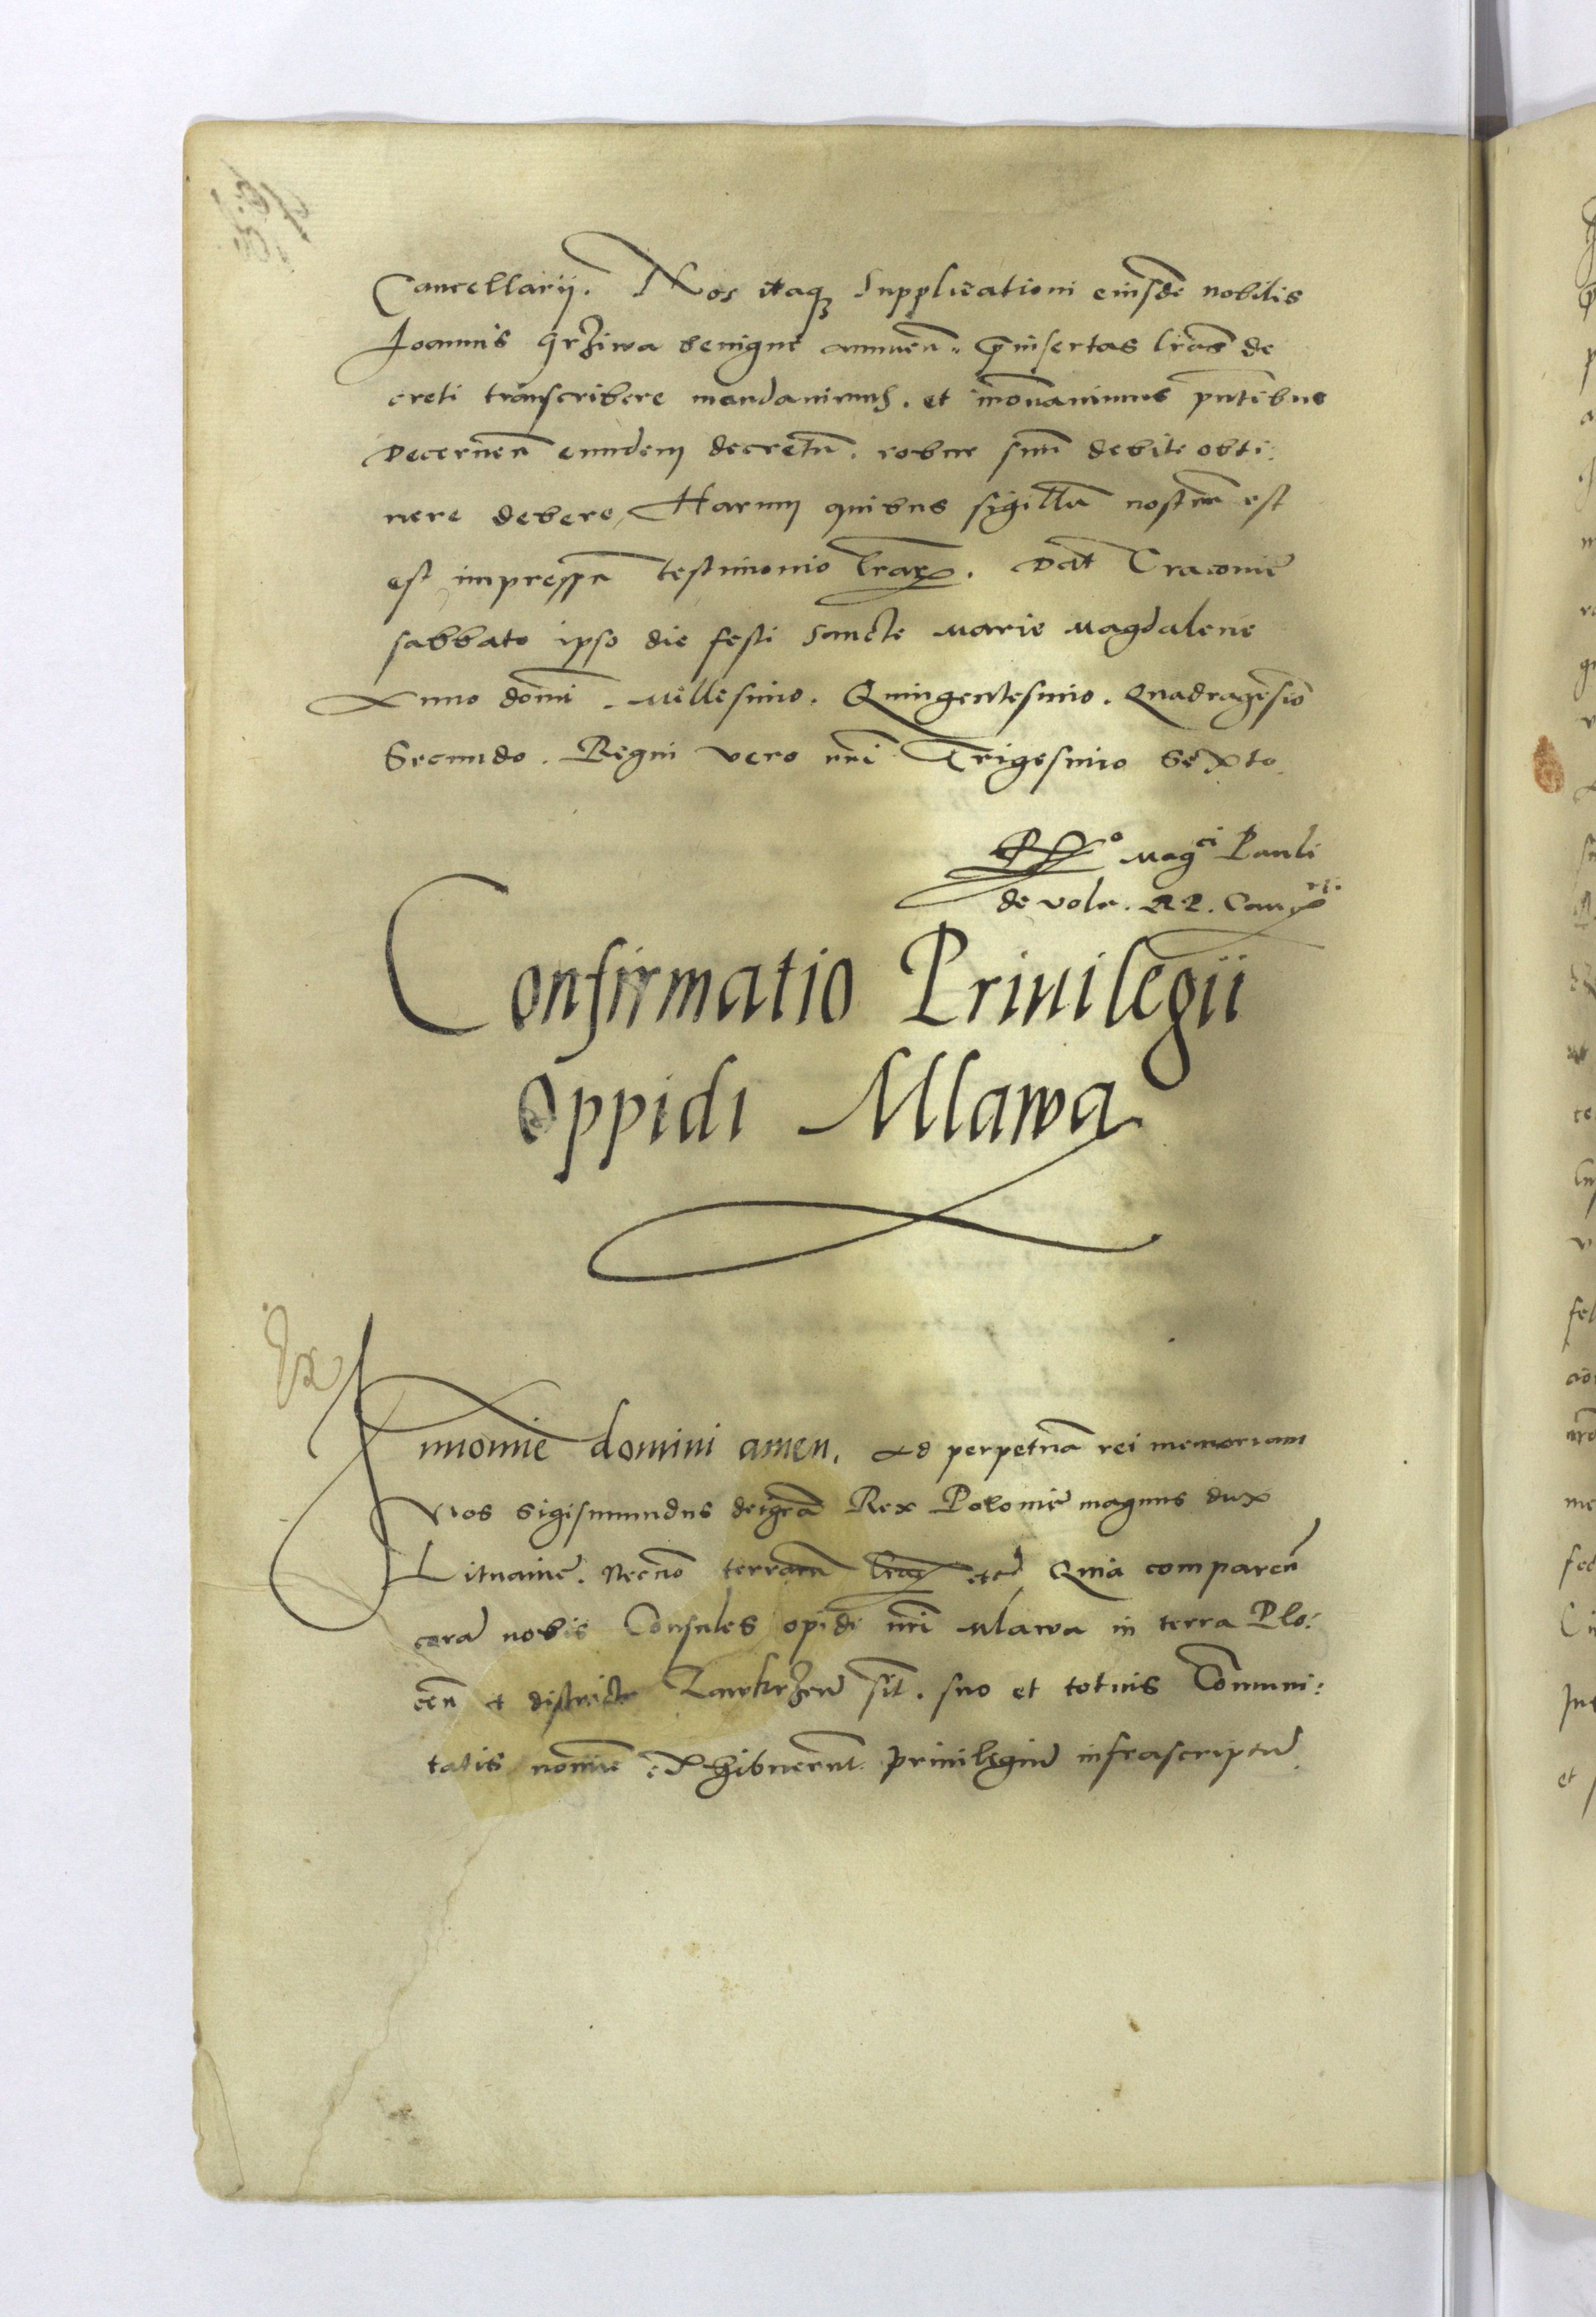 Cancellarij. Nos itaq; Supplicationi eiusdē nobilis
Joannis Grziwa benigne annuen̄. p̄insertas lr̄as de
creti transcribere mandauimus. et in̄ouauimus pn̄tibus
Decernen̄ eundem decretū. robur suū debite obti:
nere debere, Harum quibus sigillū nostrū est
est impressū testimonio lr̄arꝝ. Dat̄ Cracouie
sabbato ipso die festi Sancte Marie Magdalene
Anno domī. Millesimo. Quingentesimo. Quadragesiō
Secundo. Regni vero nr̄i Trigesimo Sexto.
Rō Magci Pauli
de vola. R P. Canrii
Confirmatio Priuilegii
Oppidi Mlawa
In noīe domini amen. Ad perpetuā rei memoriam
Nos Sigismundus dei gr̄a Rex Polonie magnus dux
Lituanie. Necnō terrarū etc̄ Quia comparen̄
corā nobis Consules opidi nr̄i Mlawa in terra Plo:
cen̄ et districtu Zawkrzen̄ sit̄. suo et totius Cōmuni:
tatis noīe exhibuerunt priuilegiū infrascriptū.